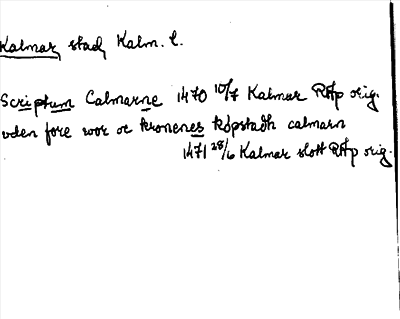 Kalmar, stad, Kalm. l.
Scriptum Calmarne 1470 10/7 Kalmar RAp orig.
uden fore wor oc kronenes köpstadh calmarn
1471 28/6 Kalmar slott RAp orig.